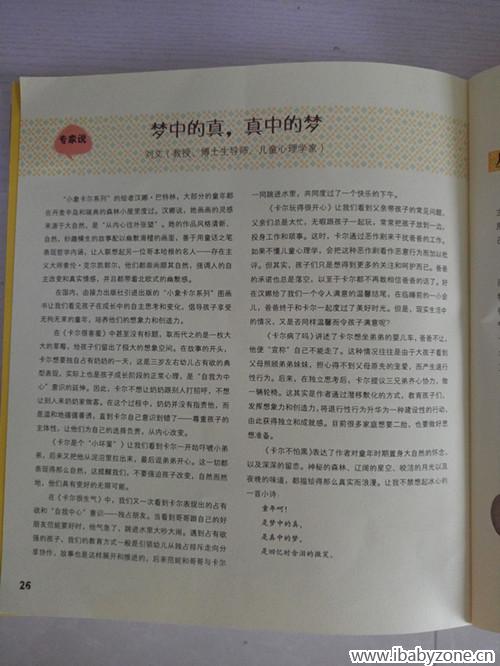 专家说
梦中的真，真中的梦
刘文（教授、博士生导师、儿童心理学家）
“小象卡尔系列”的绘者汉娜·巴特林，大部分的童年都
在丹麦半岛和瑞典的森林小屋里度过。汉娜说，她画画的灵感
来源于大自然，是“从内心往外张望”。她的作品风格清新、
自然，妙趣横生的故事配以幽默滑稽的画面，善于用童话之笔
表现哲学内涵，让人联想起另一位哥本哈根的名人——存在主
义大师索伦·克尔凯郭尔，他们都崇尚颇具自然，强调人的自
主改变和真实情感，并且都带着北欧式的幽默感。
在国内，由接力出版社引进出版的“小象卡尔系列”图画
书让我们看见孩子在成长中的自主思考和变化，倡导孩子享受
无拘无束的童年，培养他们的想象力和创造力。
在《卡尔很害羞》中甚至没有标题，取而代之的是一枚大
大的草莓，给孩子们留出了极大的想象空间。在故事的开头，
卡尔想要独自占有奶奶的一天，这是三岁左右幼儿占有欲的典
型表现，实际上也是孩子成长阶段的正常心理，是“自我为中
心”意识的延伸。因此，卡尔不想让奶奶跟别人打招呼，不想
让别人来奶奶家做客。在这个过程中，奶奶并没有指责他，而
是温和地循循善诱，直到卡尔自己意识到错了——尊重孩子的
主体性，让他们为自己的选择负责，从内心改变。
《卡尔是个“小坏蛋”》让我们看到卡尔一开始吓唬小弟
弟，后来又把他从泥沼里拉出来，最后逗弟弟开心。这一切都
表现得那么自然，这提醒我们，不要强迫孩子改变，自然而然
地，他们具有变好的无限可能。
在《卡尔很生气》中，我们又一次看到卡尔表捉出的占有
欲和“自我中心”意识——独占朋友。当看到哥哥跟自己的好
朋友范妮要好时，他气急了，跳进水里大吵大闹。遇到占有欲
强的孩子，我们的教育方式一般是引领幼儿从独占排斥走向分
享协作，故事也是这样展开和推进的，后来范妮和哥哥与卡尔
一同跳进水里，共同度过了一个快乐的下午。
《卡尔玩得很开心》让我们看到父亲带孩子的常见问题，
父亲们总是太忙，无暇跟孩子一起玩，常常把孩子放到一边，
投身工作和琐事。这时，卡尔通过恶作剧来干扰爸爸的工作。
如果不懂儿童心理学，会把这种恶作剧看作恶意行为而加以批
评。但其实，孩子们只是想得到更多的关注和呵护而已。爸爸
的承诺也总是落空，以至于卡尔都不再敢相信爸爸的话了。好
在汉娜给了我们一个令人满意的温馨结尾，在临睡前的一小会
儿，爸爸终于和卡尔一起度过了美好时光。但是，现实生活中
的情况，又是否同样温馨而令孩子满意呢？
《卡尔病了吗》讲述了卡尔想坐弟弟的婴儿车，爸爸不让，
他便“宣称”自己不能走了。这种情况往往是由于大孩子看到
父母照顾弟弟妹妹，担心得不到父母原先的宠爱，而产生退行
性行为。后来，在独立思考后，卡尔提议三兄弟齐心协力，做
一辆轮椅。这其实是作者通过潜移默化的方式，教育孩子们，
发挥想象力和创造力，将退行性行为升华为一种建设性的行动，
由此获得独立和成就感。目前很多家庭想要二胎，也要做好思
想准备。
《卡尔不怕黑》表达了作者对童年时期置身大自然的怀念，
以及深深的留恋。神秘的森林、辽阔的星空、皎洁的月光以及
夜晚的味道，都描绘得那么真实而浪漫，让我不禁想起冰心的
一首小诗：
童年呵！
是梦中的真，
是真中的梦，
是回忆时含泪的微笑。
26
www.ibabyzone.cn